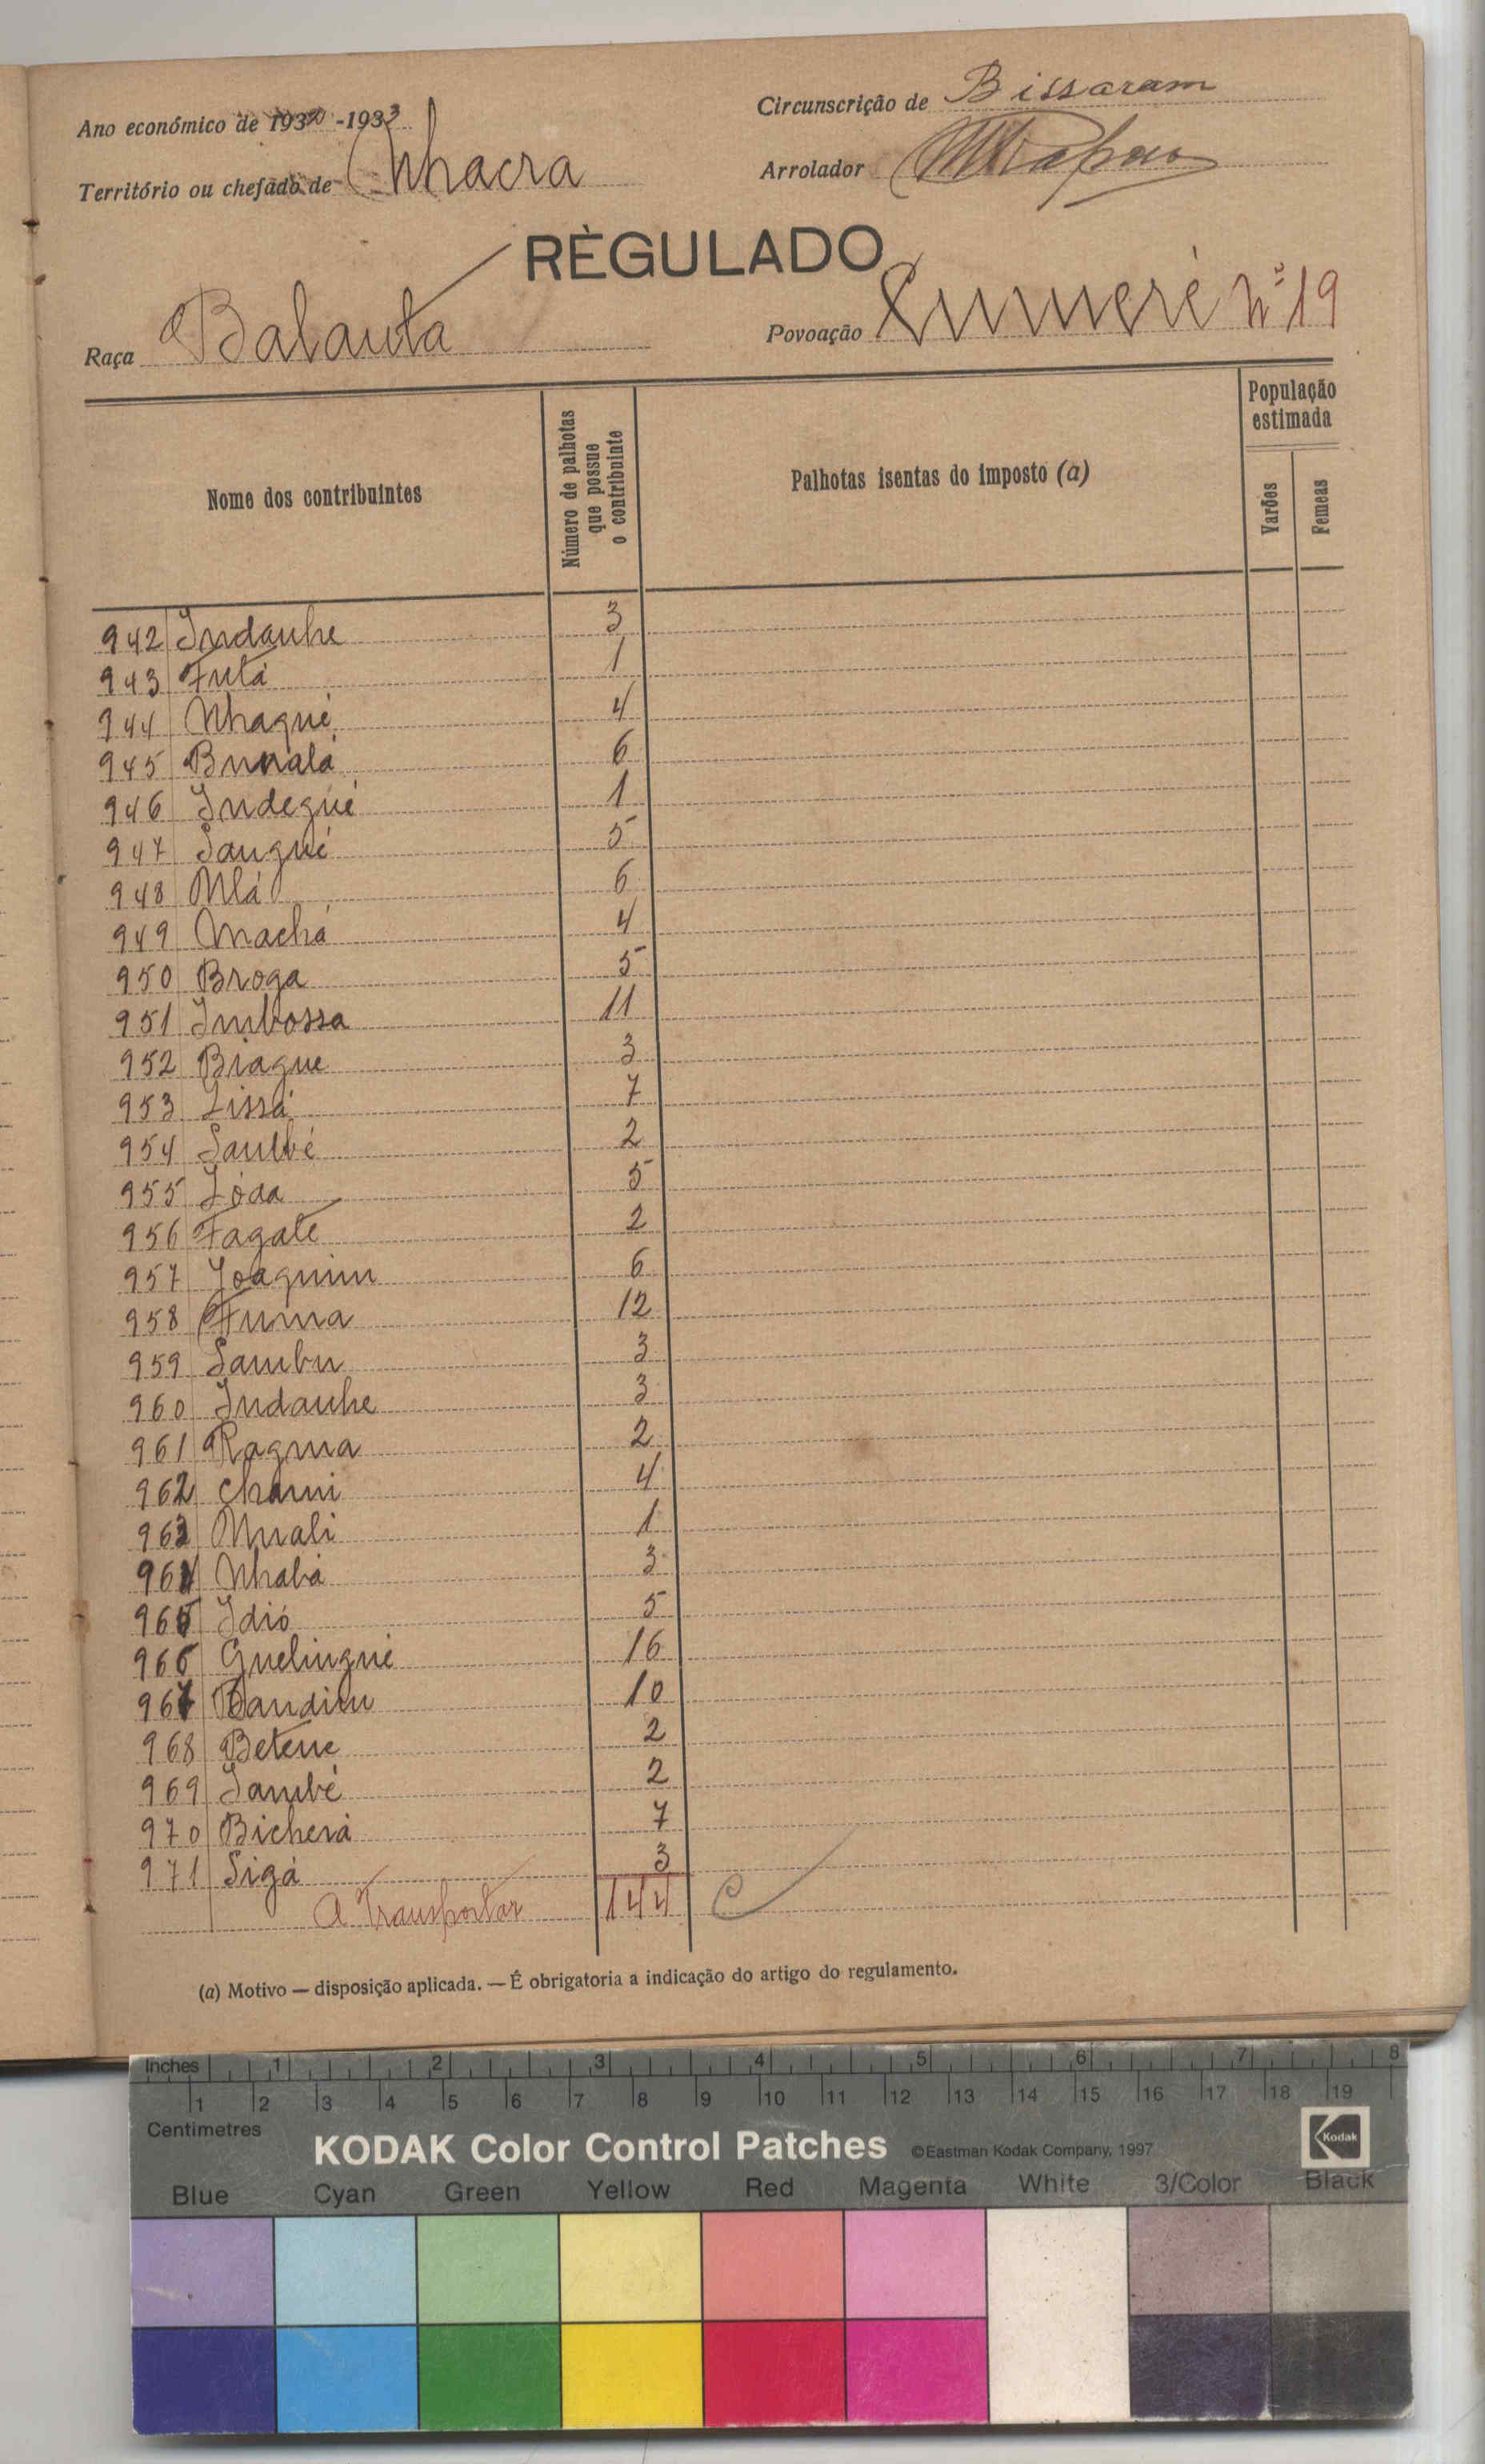 Ano económico de 1930-1933
Circunscrição de Bissaram
Território ou chefado de Nhacra
Arrolador
RÈGULADO
Raça Balanta
Povoação Cumeré nº 19
Nome dos contribuintes
Número de palhotas que possue o contribuinte
Palhotas isentas do imposto (a)
População estimada
Varões
Femeas
942 Indauhe 3
943 Futá 1
944 Nhagué 4
945 Bunalá 6
946 Indegué 1
947 Sangué 5
948 Mlá 6
949 Machá 4
950 Broga 5
951 Imbossa 11
952 Biague 3
953 Lissá 7
954 Saulbé 2
955 Lóda 5
956 Fagate 2
957 Joaquim 6
958 Fuma 12
959 Sambu 3
960 Indauhe 3
961 Ragma 2
962 Chami 4
963 Muali 1
964 Nhabá 3
965 Idió 5
966 Guelingué 16
967 Bandim 10
968 Betene 2
969 Sambé 2
970 Bicherá 7
971 Sigá 3
A Transportar 144
(a) Motivo — disposição aplicada. — É obrigatoria a indicação do artigo do regulamento.
Inches 1 2 3 4 5 6 7 8
1 2 3 4 5 6 7 8 9 10 11 12 13 14 15 16 17 18 19
Centimetres
KODAK Color Control Patches ©Eastman Kodak Company, 1997 Kodak
Blue Cyan Green Yellow Red Magenta White 3/Color Black